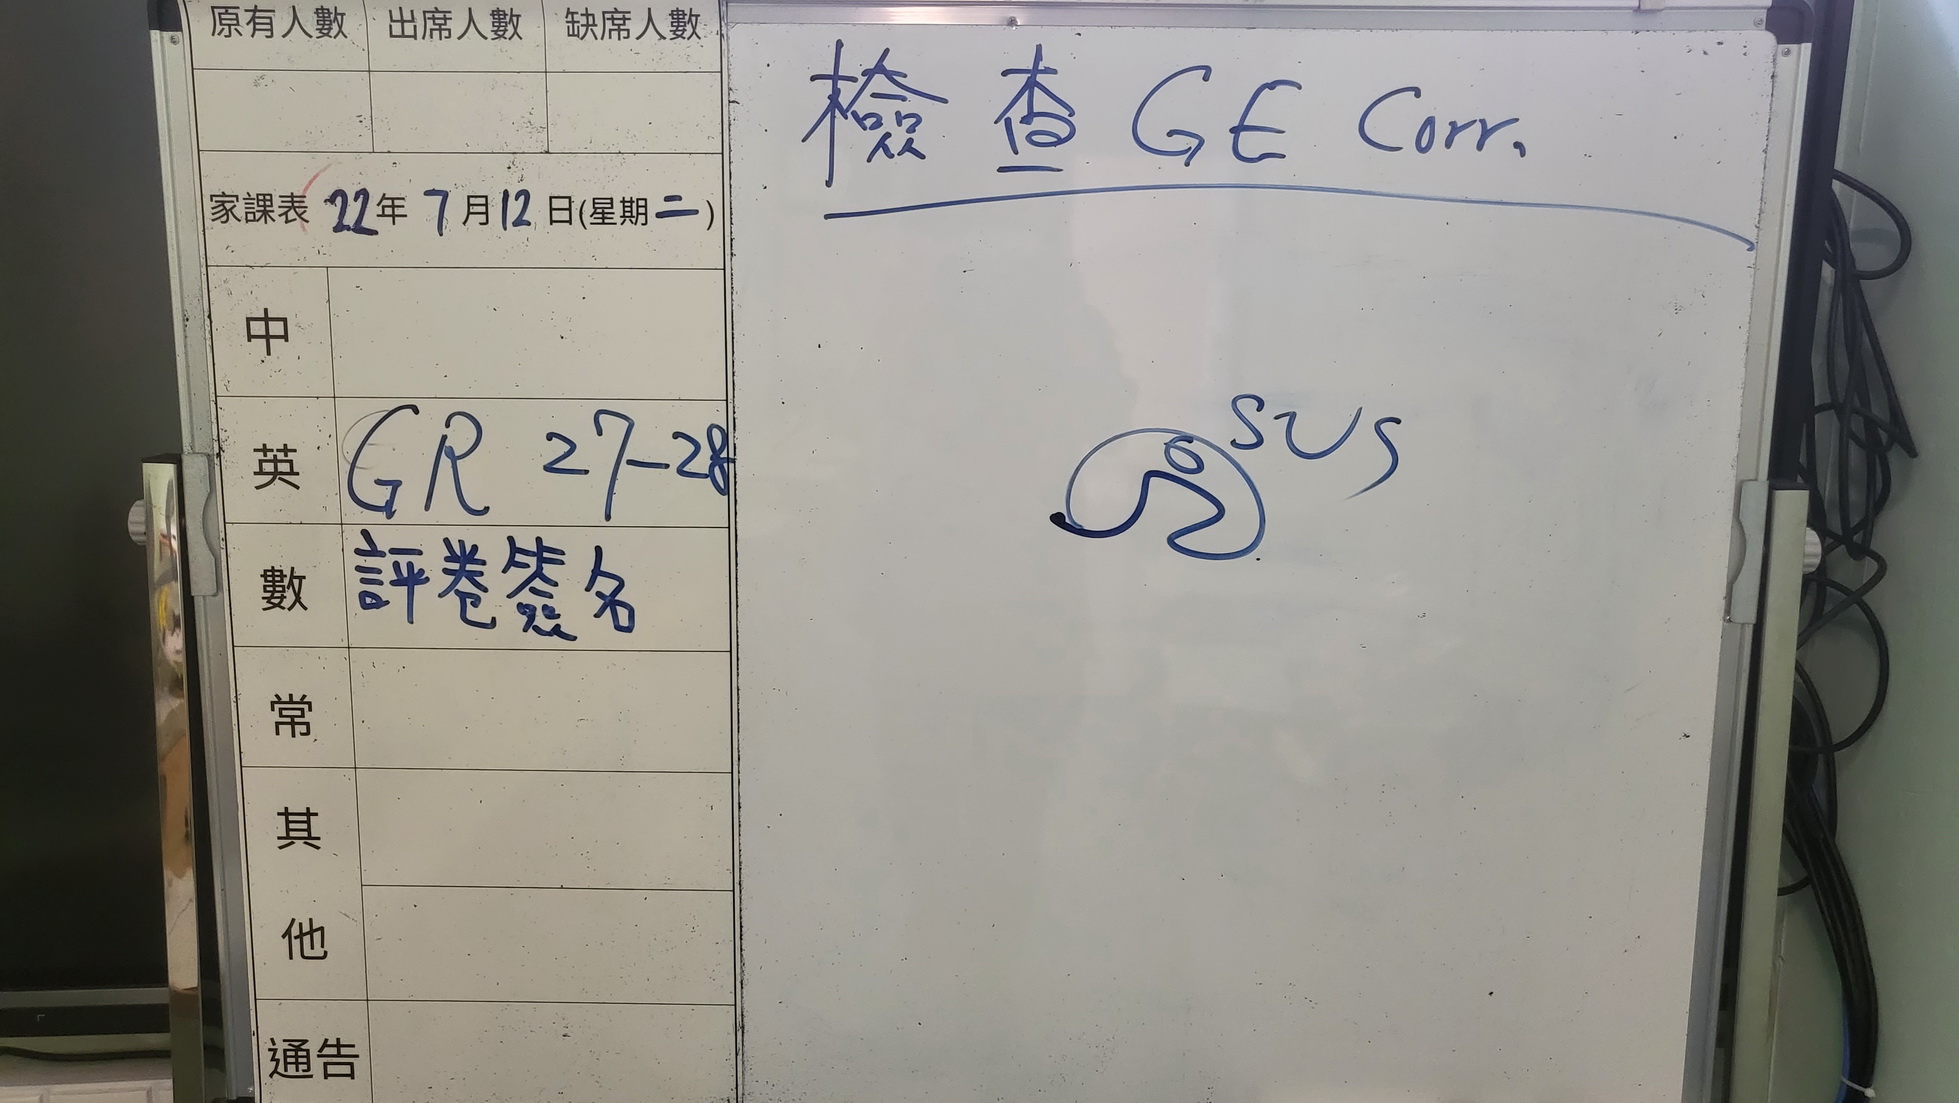 原有人數 出席人數 缺席人數
家課表 22年 7月12日(星期二)
中
英 GR 27-28
數 評卷簽名
常
其
他
通告
檢查 GE Corr.
sus